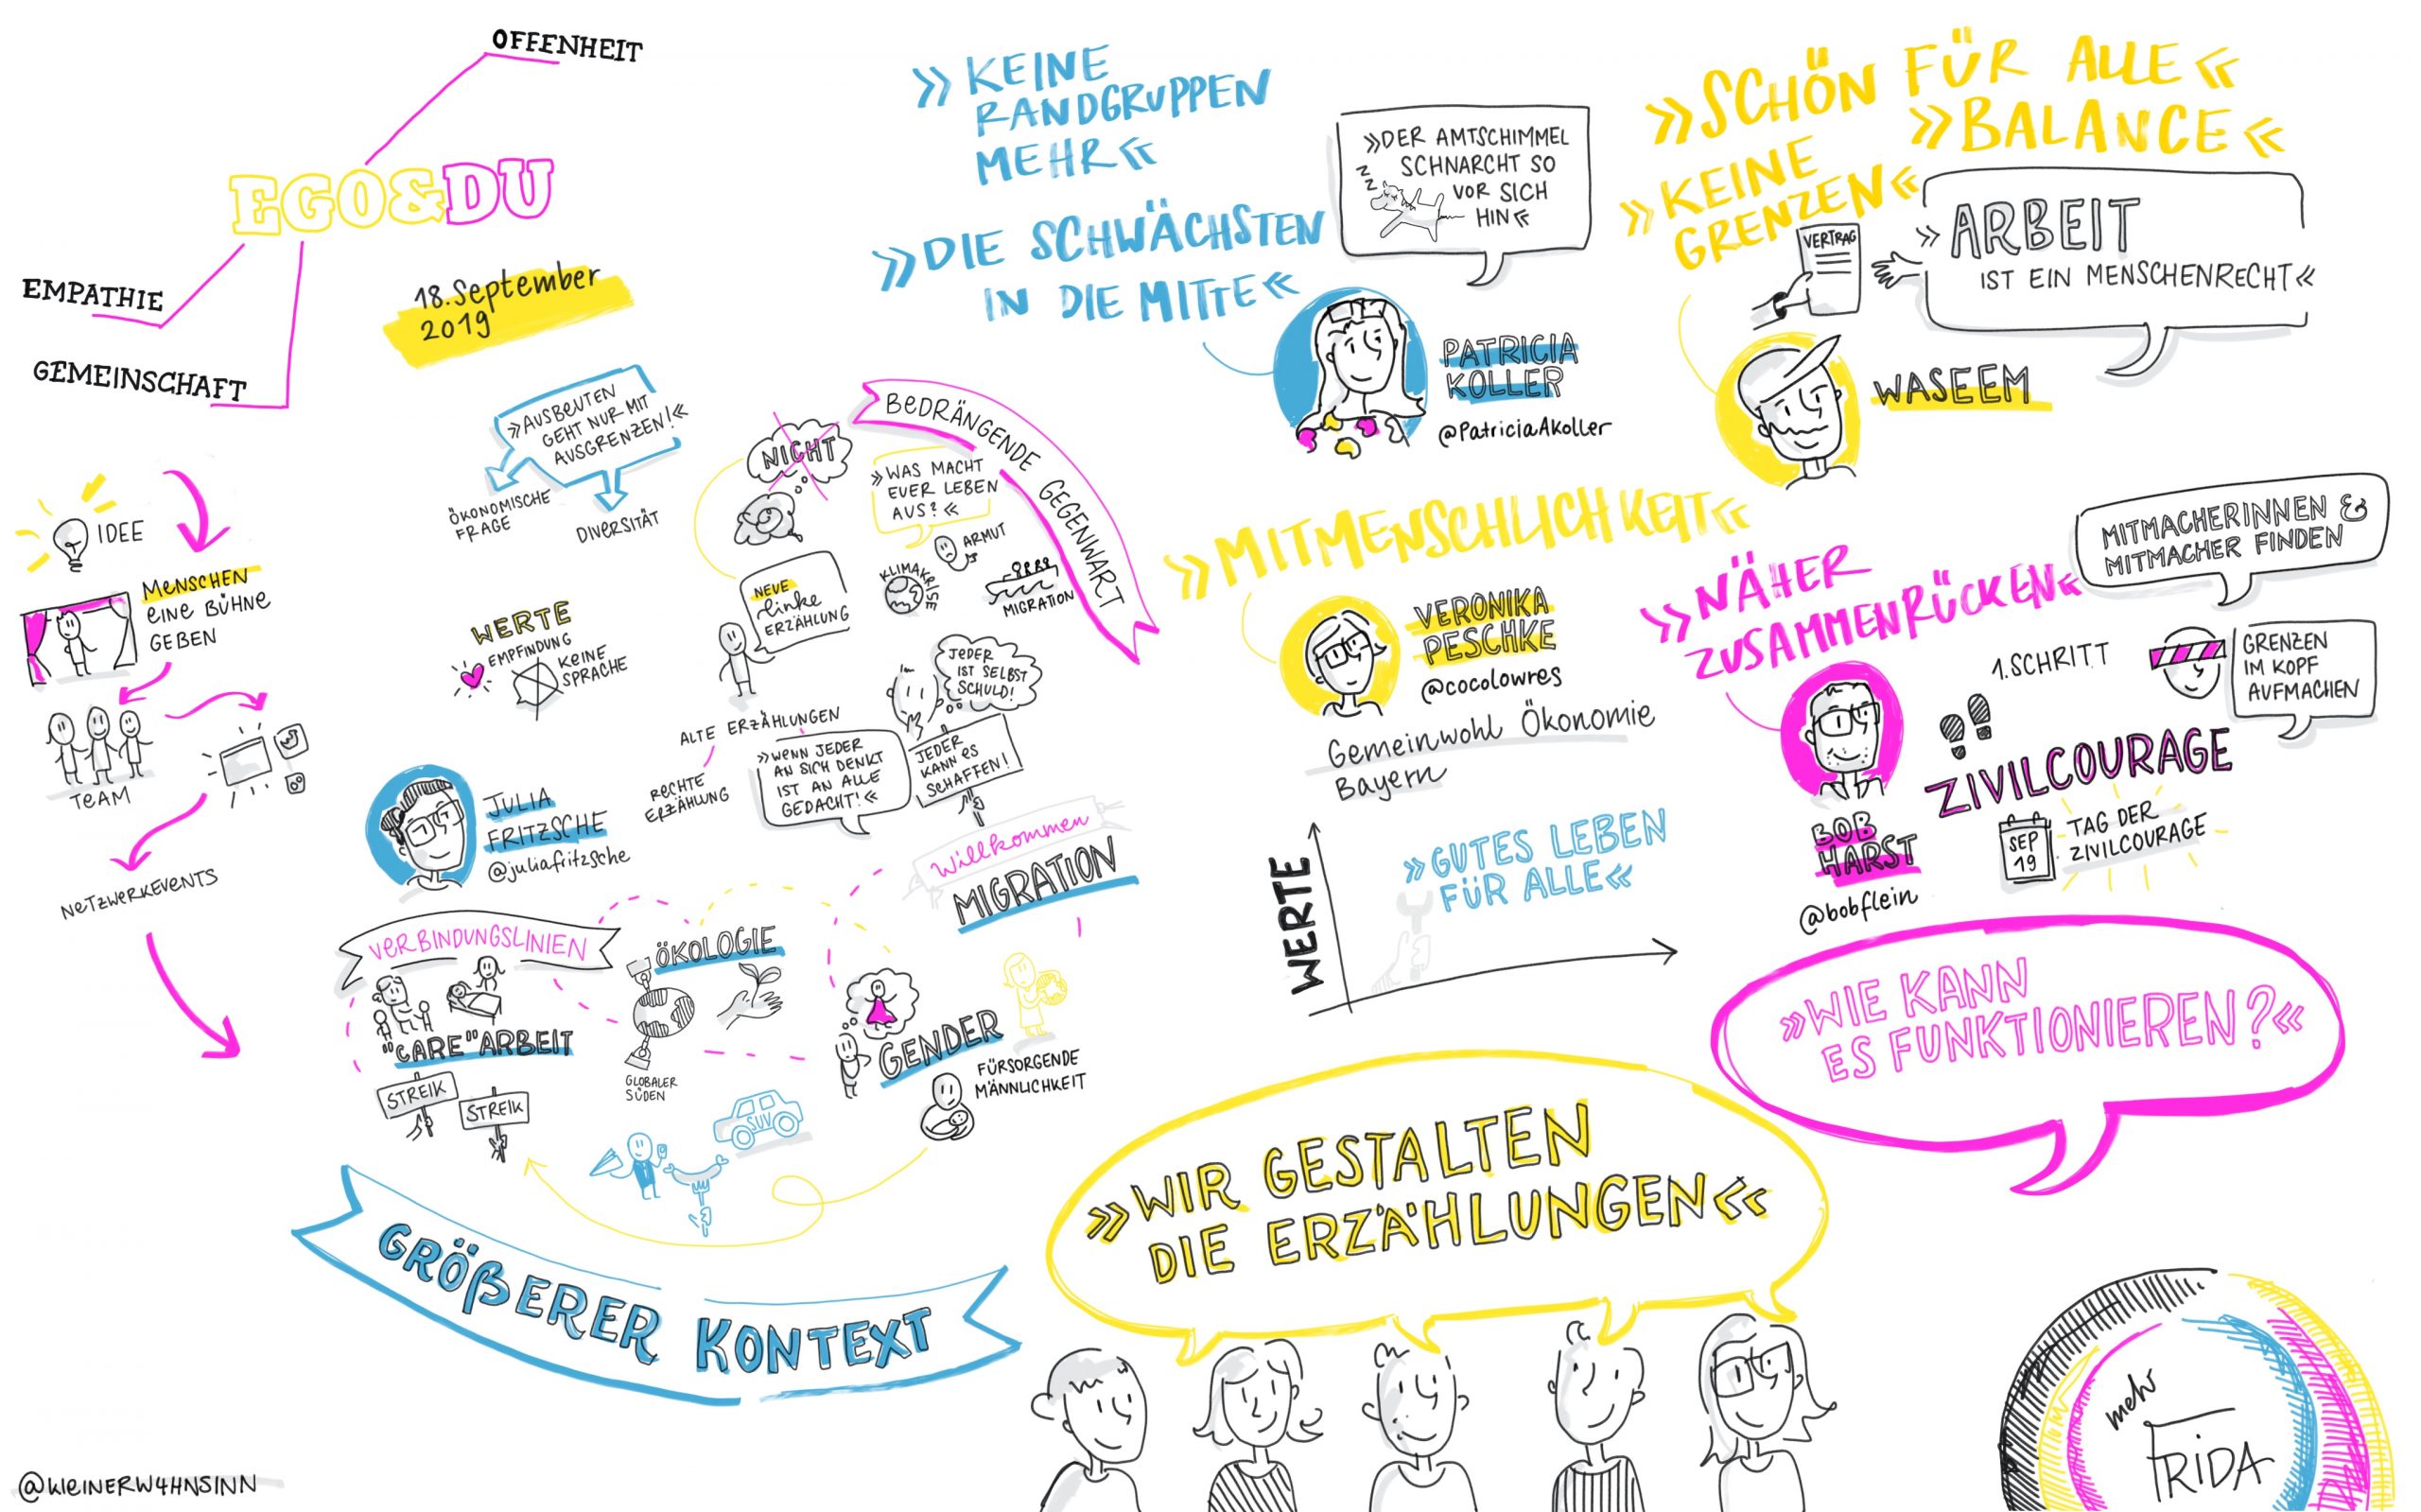 OFFENHEIT
EGO&DU
EMPATHIE
GEMEINSCHAFT
18. September
2019
IDEE
MENSCHEN
EINE BÜHNE
GEBEN
TEAM
NETZWERKEVENTS
»AUSBEUTEN
GEHT NUR MIT
AUSGRENZEN!«
ÖKONOMISCHE
FRAGE
DIVERSITÄT
WERTE
EMPFINDUNG
KEINE
SPRACHE
JULIA
FRITZSCHE
@juliafritzsche
NICHT
NEUE
linke
ERZÄHLUNG
BEDRÄNGENDE GEGENWART
»WAS MACHT
EUER LEBEN
AUS?«
ARMUT
KLIMAKRISE
MIGRATION
ALTE ERZÄHLUNGEN
RECHTE
ERZÄHLUNG
»WENN JEDER
AN SICH DENKT
IST AN ALLE
GEDACHT!«
JEDER
IST SELBST
SCHULD!
JEDER
KANN ES
SCHAFFEN!
Willkommen
MIGRATION
VERBINDUNGSLINIEN
"CARE"ARBEIT
STREIK
STREIK
ÖKOLOGIE
GLOBALER
SÜDEN
SUV
GENDER
FÜRSORGENDE
MÄNNLICHKEIT
GRÖßERER KONTEXT
@kleinerw4hnsinn
»KEINE
RANDGRUPPEN
MEHR«
»DIE SCHWÄCHSTEN
IN DIE MITTE«
»DER AMTSCHIMMEL
SCHNARCHT SO
VOR SICH
HIN«
Z
Z
PATRICIA
KOLLER
@PatriciaAkoller
»SCHÖN FÜR ALLE«
»BALANCE«
»KEINE
GRENZEN«
VERTRAG
»ARBEIT
IST EIN MENSCHENRECHT«
WASEEM
»MITMENSCHLICHKEIT«
VERONIKA
PESCHKE
@cocolowres
Gemeinwohl Ökonomie
Bayern
WERTE
»GUTES LEBEN
FÜR ALLE«
»NÄHER
ZUSAMMENRÜCKEN«
MITMACHERINNEN &
MITMACHER FINDEN
1. SCHRITT
GRENZEN
IM KOPF
AUFMACHEN
ZIVILCOURAGE
SEP
19
TAG DER
ZIVILCOURAGE
BOB
HARST
@bobflein
»WIE KANN
ES FUNKTIONIEREN?«
»WIR GESTALTEN
DIE ERZÄHLUNGEN«
mehr
FRIDA